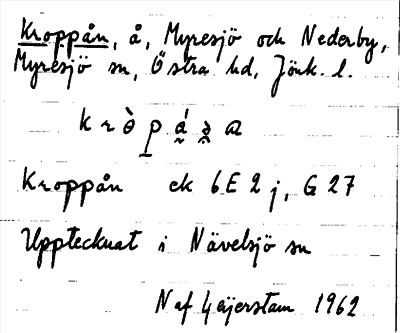 Kroppån, å, Myresjö och Nederby,
Myresjö sn, Östra hd, Jönk. l.
k r ò̱ p á̰ ə̯ a
Kroppån ek 6E 2 j, G 27
Upptecknat i Nävelsjö sn
N af Geijerstam 1962